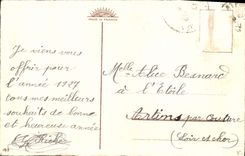 Je viens vous
offrir pour
l'année 1937
tous mes meilleurs
souhaits de bonne
et heureuse année
Melle Alice Besnard
à l'Etoile
Artins par Couture
(Loir et cher)